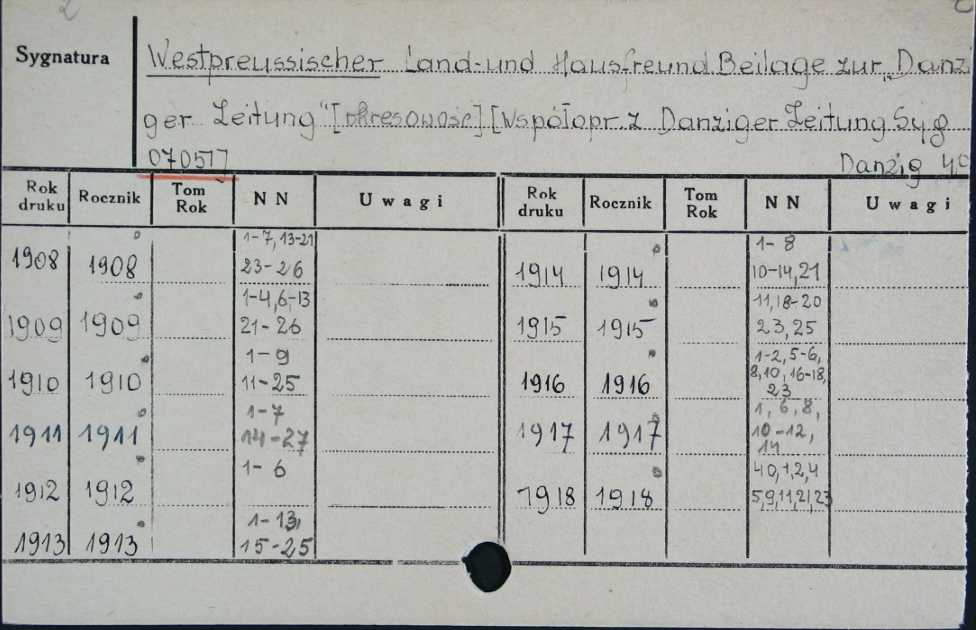 Sygnatura
Westpreussischer Land-und Hausfreund.Beilage zur „Danzi
ger Zeitung" [okresowość] [Współopr. z Danziger Zeitung Syg
070517
Danzig 4°
Rok druku Rocznik Tom Rok NN Uwagi Rok druku Rocznik Tom Rok NN Uwagi
1-7, 13-21 1-8
1908 1908 23-26 1914 1914 10-14,21
1-4,6-13 11,18-20
1909 1909 21-26 1915 1915 23,25
1-9 1-2,5-6,
1910 1910 11-25 1916 1916 8,10,16-18,
23
1-7 1,6,8,
1911 1911 14-27 1917 1917 10-12,
14
1-6 40,1,2,4
1912 1912 1918 1918 5,9,11,21,23
1-13,
1913 1913 15-25